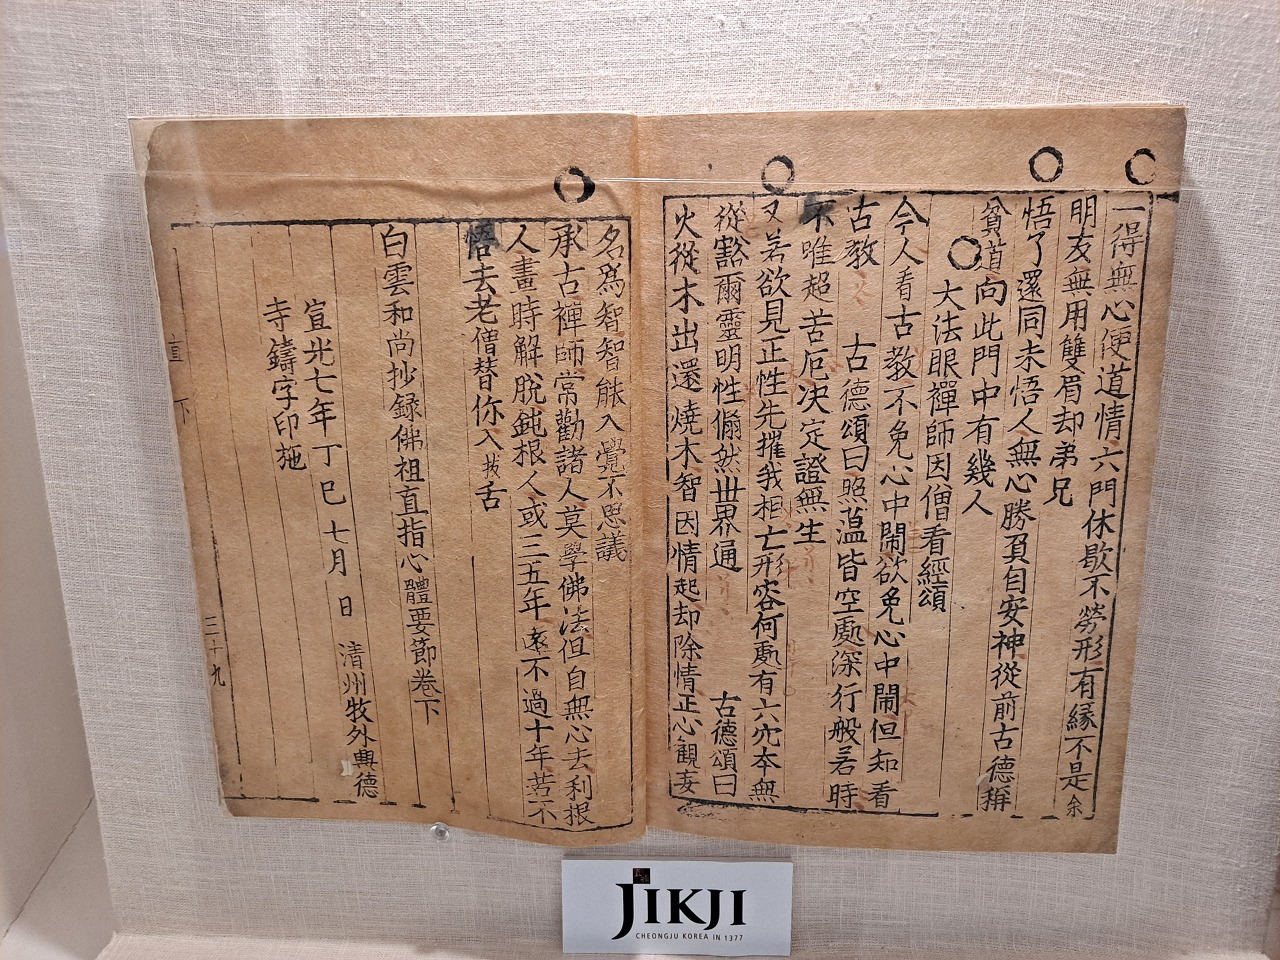 一得無心便道情六門休歇不勞形有緣不是余
明友無用雙眉却弟兄
悟了還同未悟人無心勝負自安神從前古德稱
貧道向此門中有幾人
大法眼禪師因僧看經頌
今人看古教不免心中鬧欲免心中鬧但知看
古教 古德頌曰照蘊皆空處深行般若時
不唯超苦厄决定證無生
又若欲見正性先摧我相亡形容何處有六穴本無
從豁爾靈明性翛然世界通 古德頌曰
火從木出還燒木智因情起却除情正心觀妄
名爲智智能入覺不思議
承古禪師常勸諸人莫學佛法但自無心去利根
人畫時解脫鈍根人或三五年遠不過十年若不
悟去老僧替你入拔舌
白雲和尚抄録佛祖直指心體要節卷下
宣光七年丁巳七月 日 清州牧外興德
寺鑄字印施
直 下
三十九
JIKJI
CHEONGJU KOREA IN 1377